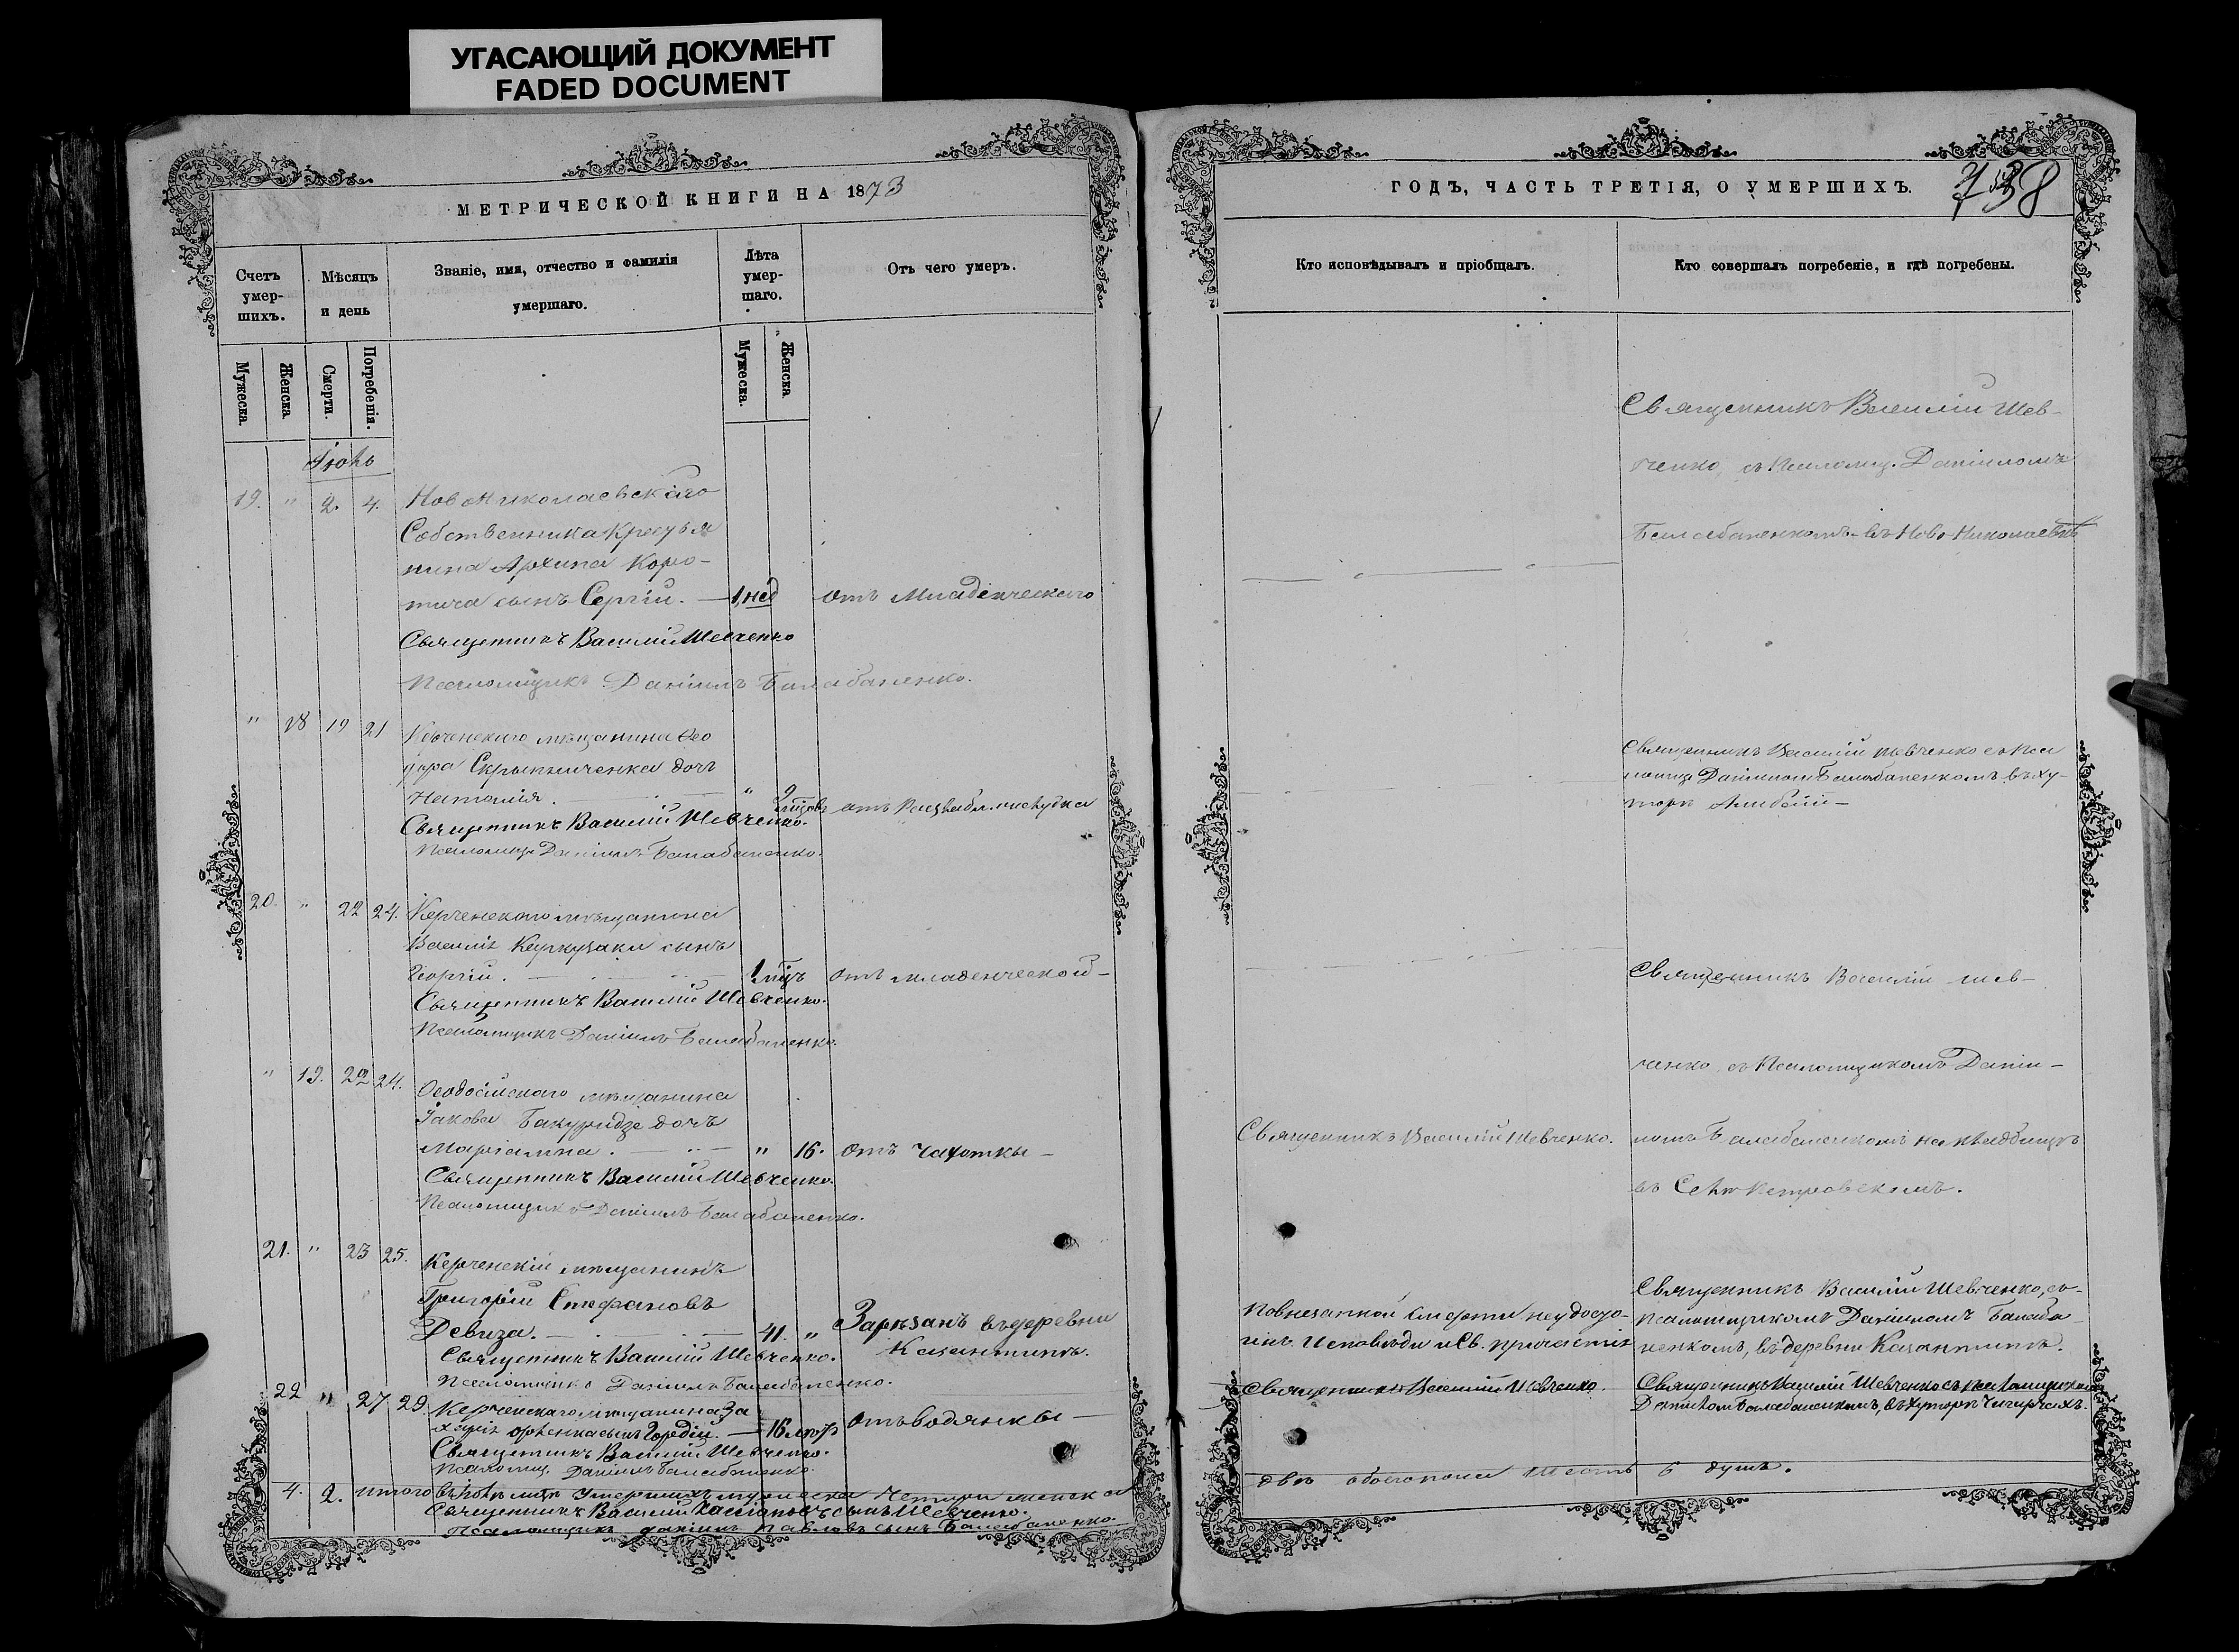 УГАСАЮЩИЙ ДОКУМЕНТ
FADED DOCUMENT
МЕТРИЧЕСКОЙ КНИГИ НА 1873
Счетъ умершихъ.
Мѣсяцъ и день
Званіе, имя, отчество и фамилія умершаго.
Лѣта умершаго.
Отъ чего умеръ.
Мужеска.
Женска
Смерти.
Погребенія.
Мужеска.
Женска
Іюнь
19. " 2. 4. Новониколаевскаго
Собственника Крестья
нина Архипа Коро-
тича сынъ Сергій. — 1 нед отъ Младенческаго
Священникъ Василій Шевченко
Псаломщикъ Даніилъ Балабаненко.
" 18 19 21 Керченскаго мѣщанина Ѳео
дора Скрыпниченка дочь
Наталія. " 9 мѣсов отъ
Священникъ Василій Шевченко.
Псаломщ Даніилъ Балабаненко.
20. " 22 24. Керченскаго мѣщанина
Василія сынъ
Георгій. 1 мцъ отъ младенческой —
Священникъ Василій Шевченко.
Псаломщикъ Даніилъ Балабаненко.
" 19. 22 24. Ѳеодосійскаго мѣщанина
Іакова дочь
" 16. отъ Чахотки —
Священникъ Василій Шевченко.
Псаломщикъ Даніилъ Балабаненко.
21. " 23 25. Керченскій мѣщанинъ
Григорій Стефановъ
Девиза. 41. " Зарѣзанъ въ деревни
Казантипъ.
Священникъ Василій Шевченко.
Псаломщикъ Даніилъ Балабаненко.
22 " 27 29. Керченскаго мѣщанина За
харія сынъ Гордій. — 16 лѣтъ отъ водянки —
Священникъ Василій Шевченко.
Псаломщ. Даніилъ Балабаненко.
4. 2. Итого въ Іюнѣ мцѣ умершихъ мужеска четыри женска
Священникъ Василій сынъ Шевченко.
Псаломщикъ Даніилъ Павловъ сынъ Балабаненко.
ГОДЪ, ЧАСТЬ ТРЕТІЯ, О УМЕРШИХЪ.
738
Кто исповѣдывалъ и пріобщалъ.
Кто совершалъ погребеніе, и гдѣ погребены.
Священникъ Василій Шев-
ченко, съ Псаломщ. Даніиломъ
Балабаненкомъ — въ Ново-Николаевкѣ
Священникъ Василій Шевченко съ Пса
ломщ Даніилом Балабаненкомъ въ ху-
торѣ
Священникъ Василій Шев-
ченко, съ Псаломщикомъ Даніи-
Священникъ Василій Шевченко. ломъ Балабаненкомъ на кладбищѣ
въ Селѣ Петровскомъ.
Священникъ Василій Шевченко, съ
По внезапной смерти неудосто- псаломщикомъ Даніиломъ Балаба
инъ Исповѣди и Св. причастія ненкомъ, въ деревни Казантипѣ.
Священникъ Василій Шевченко. Священникъ Василій Шевченко съ псаломщикомъ
Даніиломъ Балабаненкомъ, въ хуторѣ
двѣ обоего пола шесть 6 душъ.